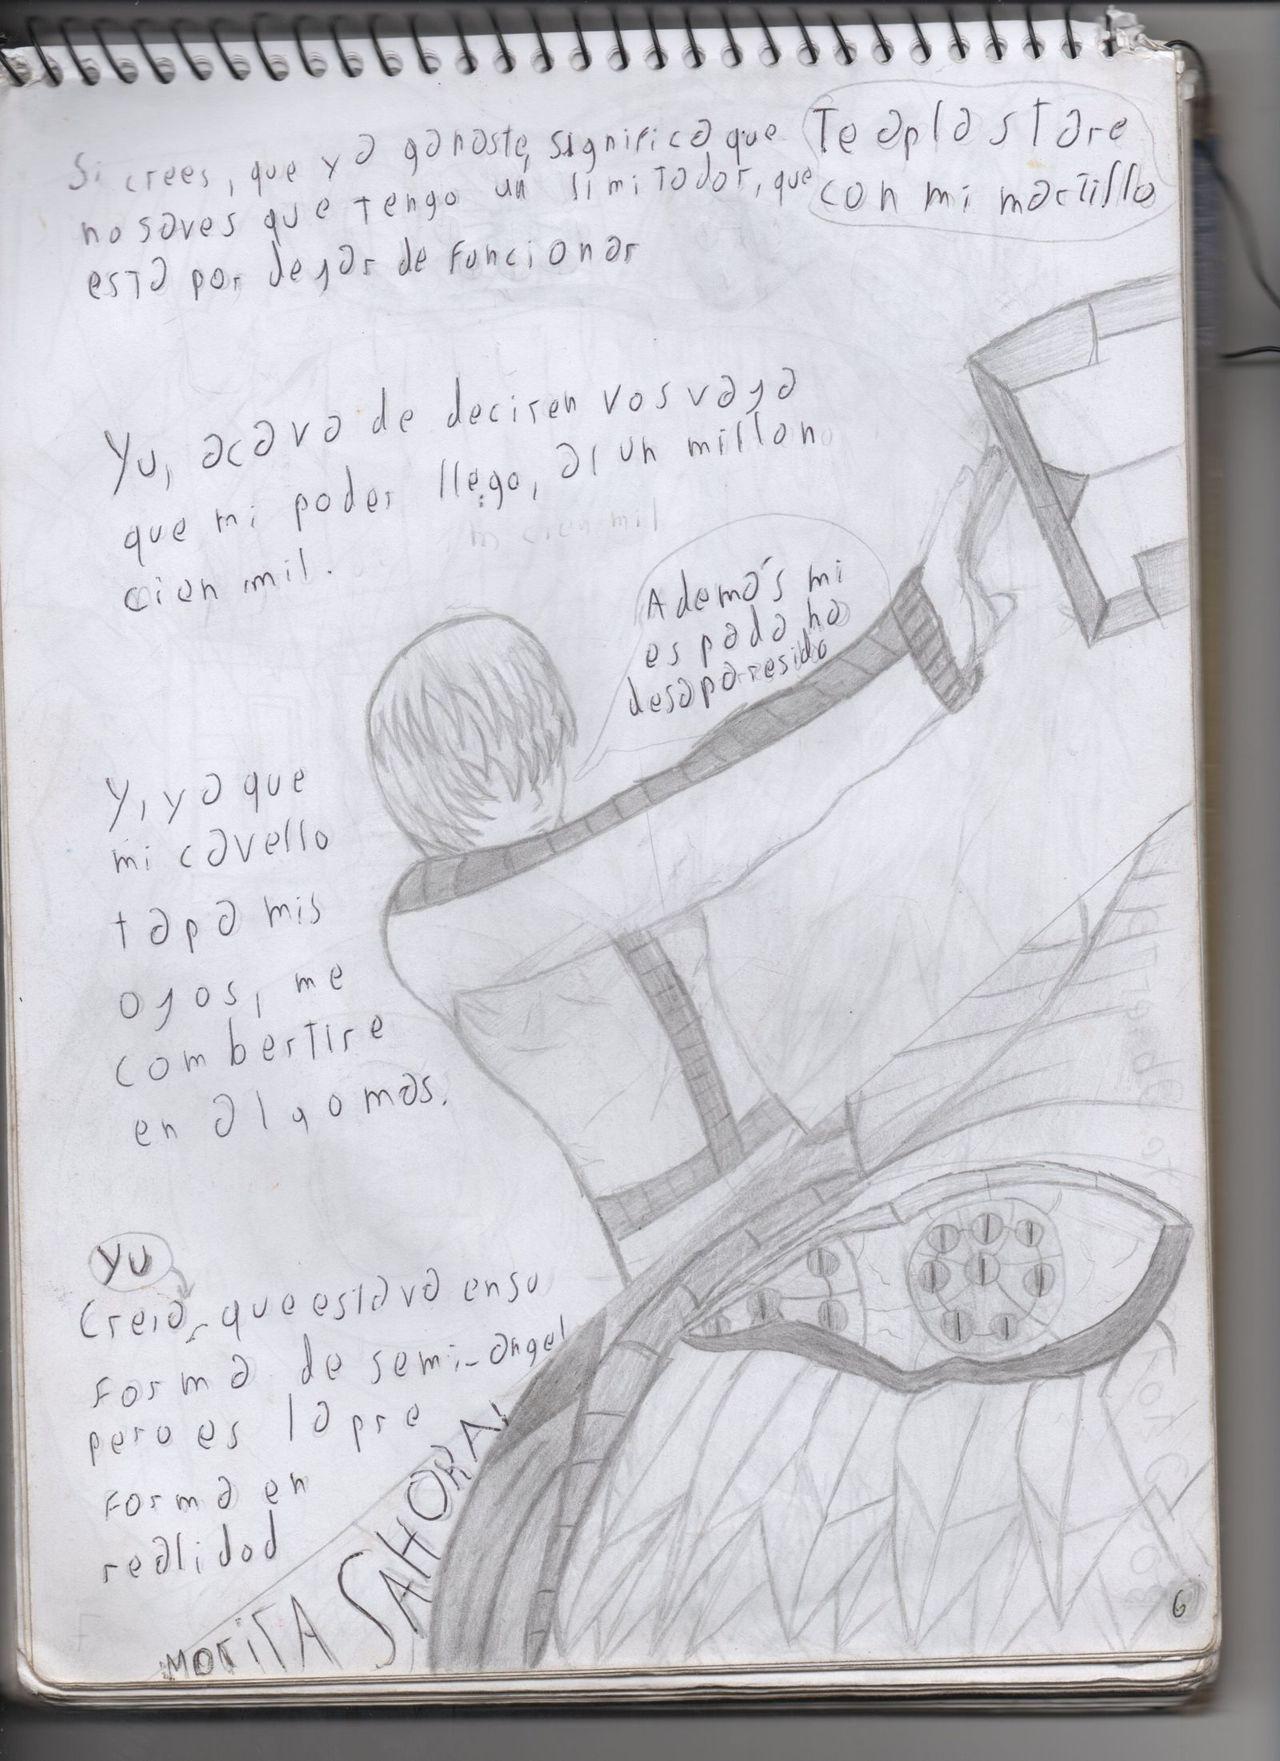 Si crees, que ya ganaste, significa que
no saves que tengo un limitador, que
esta por dejar de funcionar
Te aplastare
con mi martillo
Yu, acava de decir en vos vaja
que mi poder llego, al un millon
cien mil.
Además mi
espada ha
desaparresido
Y, ya que
mi cavello
tapa mis
ojos, me
combertire
en algo mas.
Yu
Creia, que estava en su
forma de semi-angel
pero es la pre
forma en
realidad
MORIRAS AHORA!
6